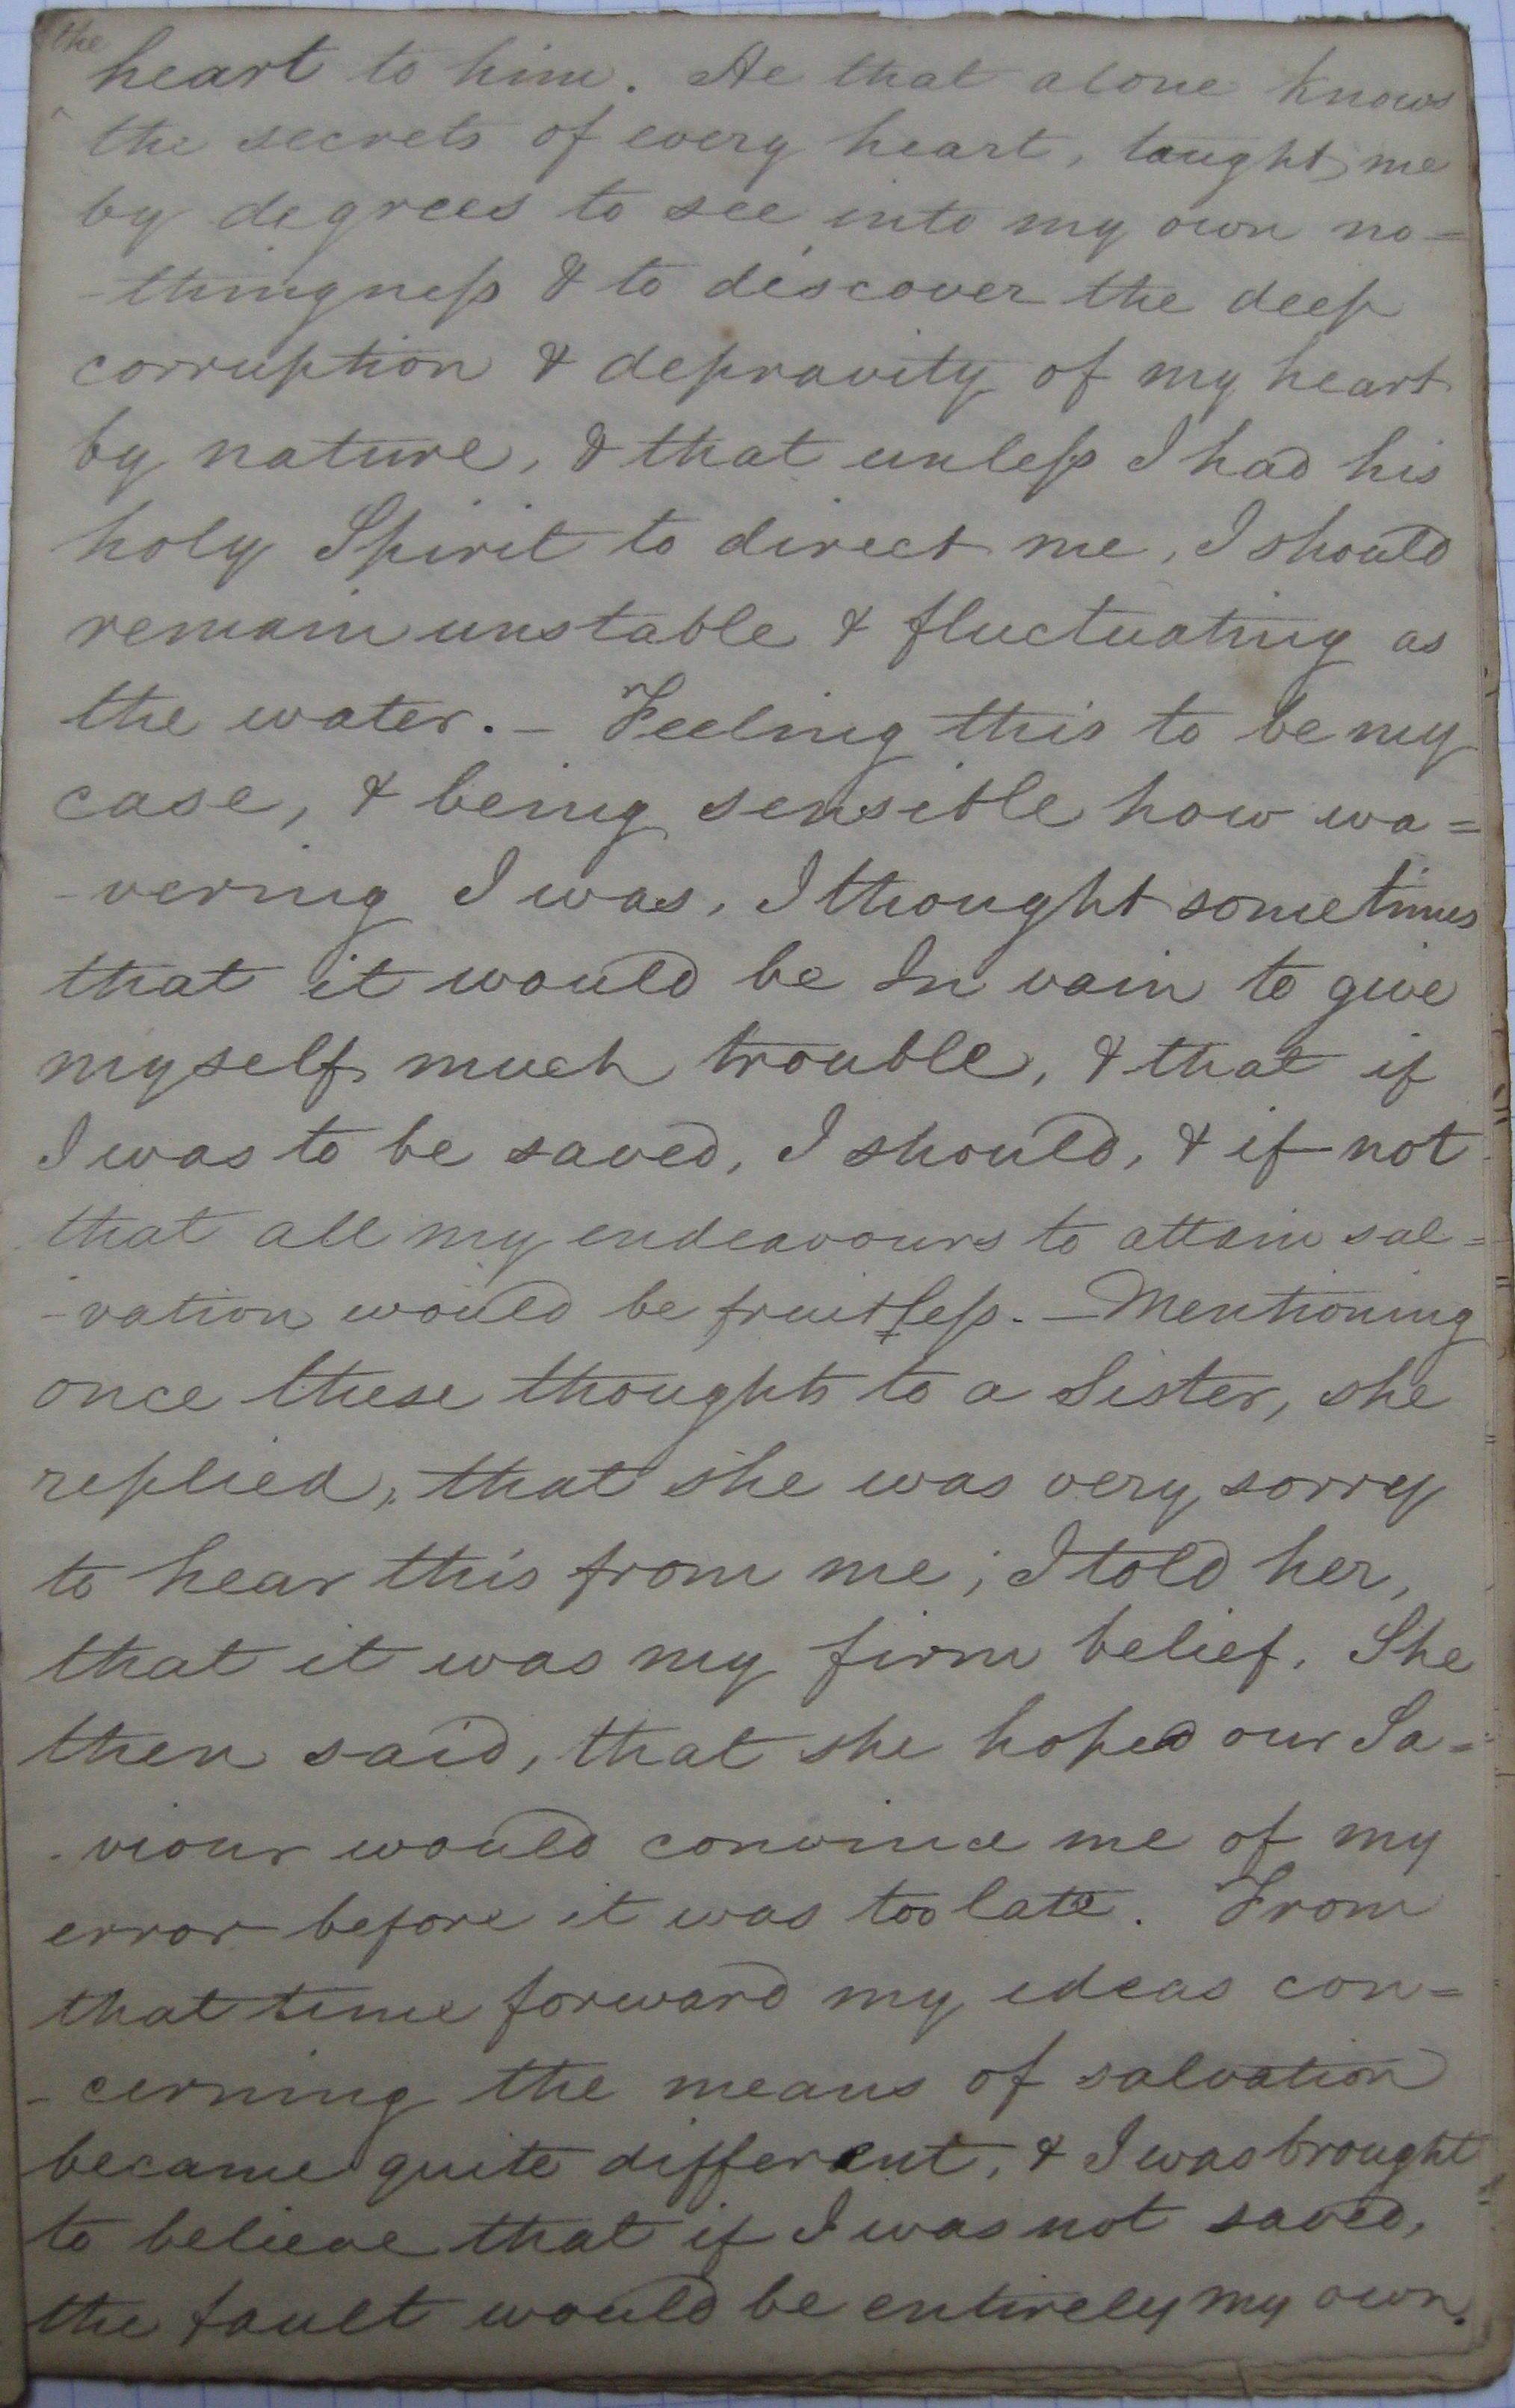 the
heart to him. He that alone knows
the secrets of every heart, taught me
by degrees to see into my own no=
-thingneſs & to discover the deep
corruption & depravity of my heart
by nature, & that unleſs I had his
holy Spirit to direct me, I should
remain unstable & fluctuating as
the water. – Feeling this to be my
case, & being sensible how wa=
-vering I was, I thought sometimes
that it would be In vain to give
myself much trouble, & that if
I was to be saved, I should, & if not
that all my endeavours to attain sal=
-vation would be fruitleſs. – Mentioning
once these thoughts to a Sister, she
replied, that she was very sorry
to hear this from me; I told her,
that it was my firm belief. She
then said, that she hoped our Sa=
-viour would convince me of my
error before it was too late. From
that time forward my ideas con=
-cerning the means of salvation
became quite different, & I was brought
to believe that if I was not saved,
the fault would be entirely my own.